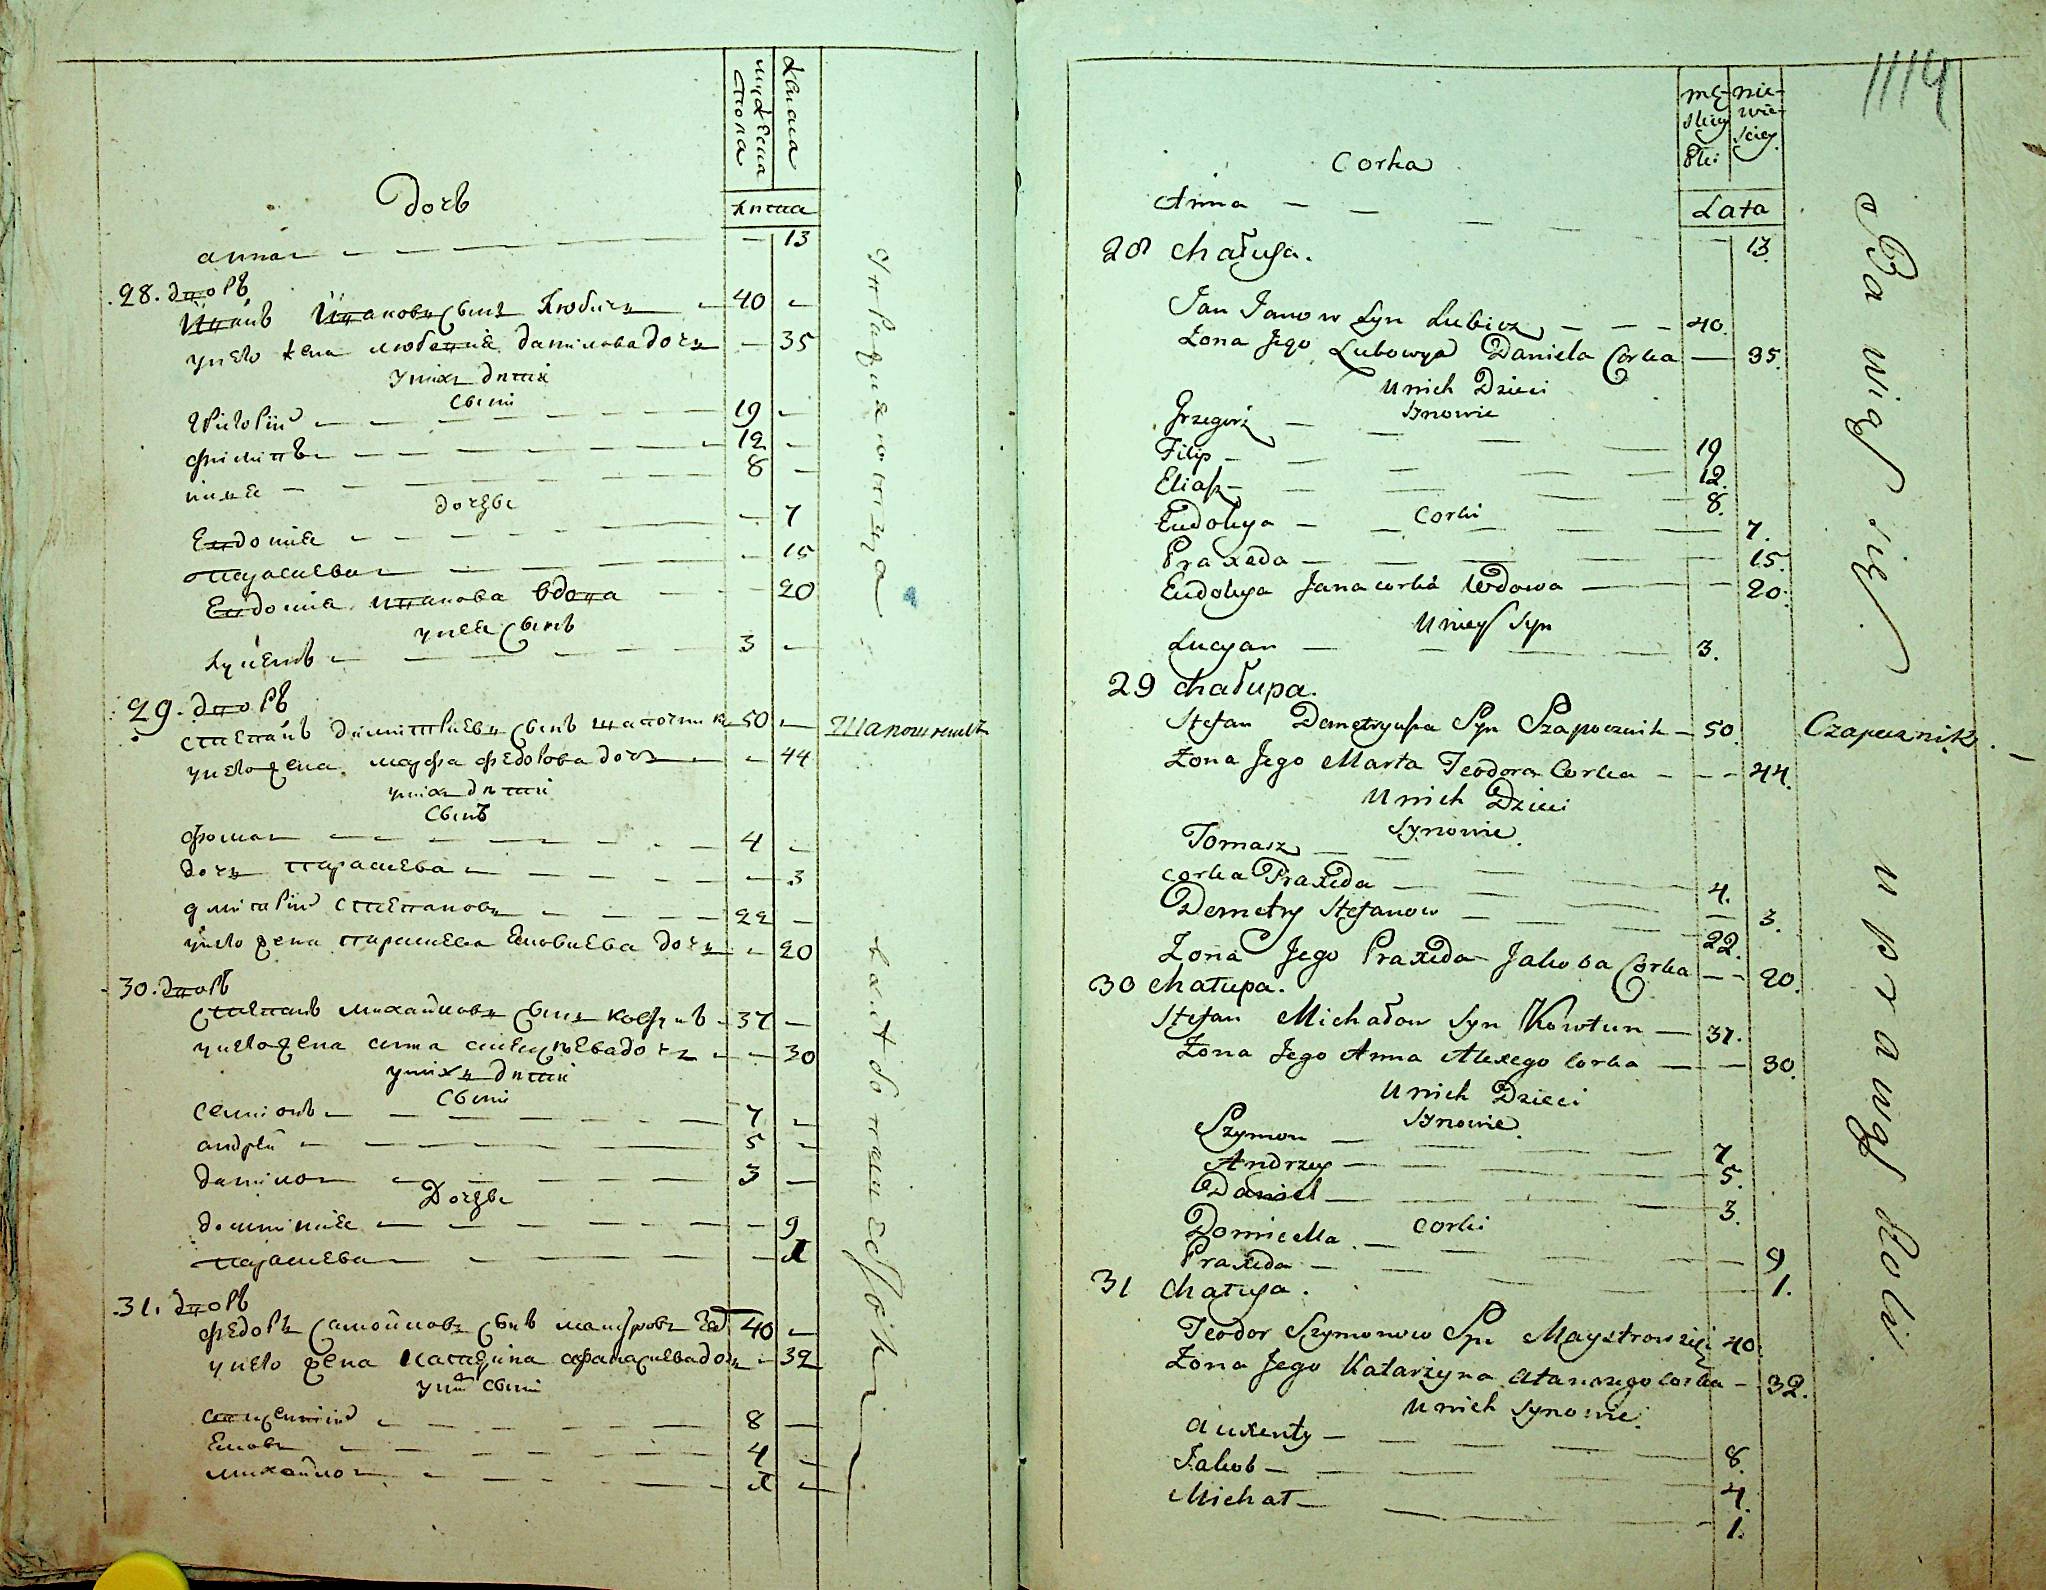 мужеска
пола
женска
лѣта
дочъ
анна 13
28. дворъ
Иванъ Ивановъ сынъ Любичъ 40
у него жена любовия данилова дочъ 35
у нихъ дѣти
сыни
григорий 19
филипъ 12
илия 8
дочери
Евдокия 7
параскева 15
Евдокия иванова вдова 20
у нея сынъ
лукиянъ 3
29. дворъ
степанъ димитриевъ сынъ шапочник 50
Шапошникъ
у него жена марфа федорова дочъ 44
у них дѣти
сынъ
фома 4
дочъ параскева 3
дмитрий степановъ 22
у него жена параскева Яковлева дочъ 20
30. дворъ
степанъ михайловъ сынъ ковтунъ 37
у него жена анна алексѣева дочъ 30
у нихъ дѣти
сыни
семионъ 7
андрей 5
данило 3
Дочери
домникия 9
параскева 1
31. дворъ
федоръ самойловъ сынъ 40
у него жена катерина афанасиева дочъ 32
у них сыни
авксентий 8
Яковъ 4
михайло 1
1114
mę-
skiey
Płci
nie-
wie-
sciey
Lata
Corka
Anna 13.
28 chałupa.
Jan Janow Syn Lubicz 40.
Zona Jego Lubowya Daniela Corka 35.
U nich Dzieci
Synowie
Grzegorz 19
Filip 12.
Eliasz 8.
Corki
Eudokya 7.
Praxeda 15.
Eudokya Jana corka Wdowa 20.
U niey Syn
Lucyan 3.
29 chałupa.
Stefan Demetryusza Syn Szapocznik 50.
Czapecznik.
Zona Jego Marta Teodora Corka 44.
U nich Dzieci
Synowie.
Tomasz 4.
corka Praxeda 3.
Demetry Stefanow 22.
Zona Jego Praxeda Jakoba Corka 20.
30 chałupa.
Stefan Michałow Syn Kowtun 37.
Zona Jego Anna Alexego Corka 30.
U nich Dzieci
Synowie.
Szymon 7.
Andrzey 5.
Daniel 3.
Corki
Domicella 9
Praxeda 1.
31 chałupa.
Teodor Szymonow Syn 40.
Zona Jego Katarzyna Atanazego Corka 32.
U nich Synowie.
Auxenty 8.
Jakob 4.
Michał 1.